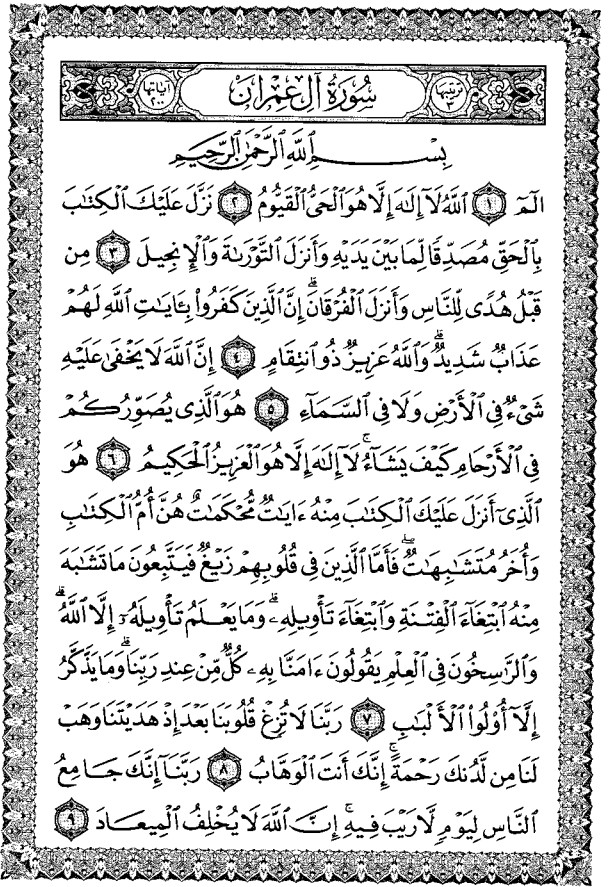 ترتيبها ٣ سُورَةُ آلِ عِمْرَانَ آياتها ٢٠٠
بِسْمِ ٱللَّهِ ٱلرَّحْمَٰنِ ٱلرَّحِيمِ
الٓمٓ ١ ٱللَّهُ لَآ إِلَٰهَ إِلَّا هُوَ ٱلْحَىُّ ٱلْقَيُّومُ ٢ نَزَّلَ عَلَيْكَ ٱلْكِتَٰبَ
بِٱلْحَقِّ مُصَدِّقًا لِّمَا بَيْنَ يَدَيْهِ وَأَنزَلَ ٱلتَّوْرَىٰةَ وَٱلْإِنجِيلَ ٣ مِن
قَبْلُ هُدًى لِّلنَّاسِ وَأَنزَلَ ٱلْفُرْقَانَ ۗ إِنَّ ٱلَّذِينَ كَفَرُوا۟ بِـَٔايَٰتِ ٱللَّهِ لَهُمْ
عَذَابٌ شَدِيدٌ ۗ وَٱللَّهُ عَزِيزٌ ذُو ٱنتِقَامٍ ٤ إِنَّ ٱللَّهَ لَا يَخْفَىٰ عَلَيْهِ
شَىْءٌ فِى ٱلْأَرْضِ وَلَا فِى ٱلسَّمَآءِ ٥ هُوَ ٱلَّذِى يُصَوِّرُكُمْ
فِى ٱلْأَرْحَامِ كَيْفَ يَشَآءُ ۚ لَآ إِلَٰهَ إِلَّا هُوَ ٱلْعَزِيزُ ٱلْحَكِيمُ ٦ هُوَ
ٱلَّذِىٓ أَنزَلَ عَلَيْكَ ٱلْكِتَٰبَ مِنْهُ ءَايَٰتٌ مُّحْكَمَٰتٌ هُنَّ أُمُّ ٱلْكِتَٰبِ
وَأُخَرُ مُتَشَٰبِهَٰتٌ ۖ فَأَمَّا ٱلَّذِينَ فِى قُلُوبِهِمْ زَيْغٌ فَيَتَّبِعُونَ مَا تَشَٰبَهَ
مِنْهُ ٱبْتِغَآءَ ٱلْفِتْنَةِ وَٱبْتِغَآءَ تَأْوِيلِهِۦ ۗ وَمَا يَعْلَمُ تَأْوِيلَهُۥٓ إِلَّا ٱللَّهُ ۗ
وَٱلرَّٰسِخُونَ فِى ٱلْعِلْمِ يَقُولُونَ ءَامَنَّا بِهِۦ كُلٌّ مِّنْ عِندِ رَبِّنَا ۗ وَمَا يَذَّكَّرُ
إِلَّآ أُو۟لُوا۟ ٱلْأَلْبَٰبِ ٧ رَبَّنَا لَا تُزِغْ قُلُوبَنَا بَعْدَ إِذْ هَدَيْتَنَا وَهَبْ
لَنَا مِن لَّدُنكَ رَحْمَةً ۚ إِنَّكَ أَنتَ ٱلْوَهَّابُ ٨ رَبَّنَآ إِنَّكَ جَامِعُ
ٱلنَّاسِ لِيَوْمٍ لَّا رَيْبَ فِيهِ ۚ إِنَّ ٱللَّهَ لَا يُخْلِفُ ٱلْمِيعَادَ ٩